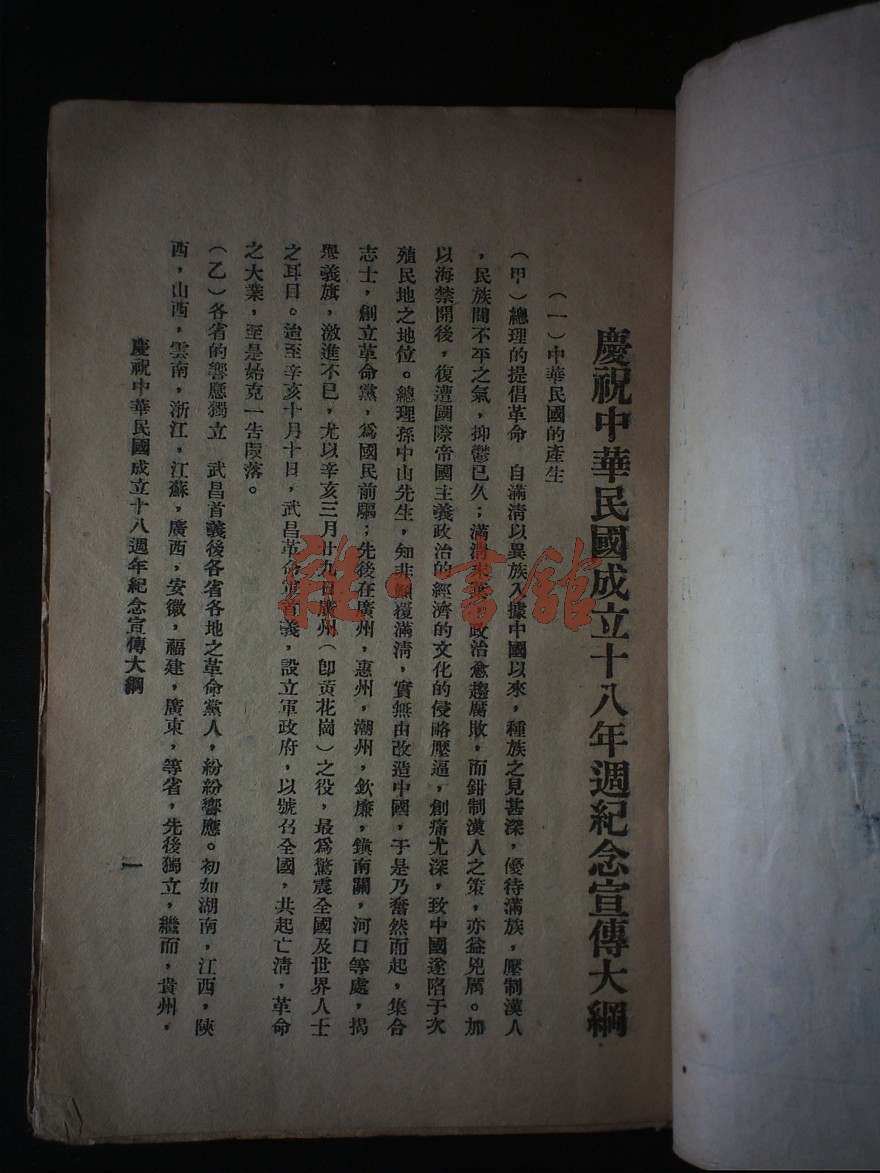 慶祝中華民國成立十八年週紀念宣傳大綱
（一）中華民國的產生
（甲）總理的提倡革命　自滿清以異族入據中國以來，種族之見甚深，優待滿族，壓制漢人
，民族間不平之氣，抑鬱已久；滿清末葉，政治愈趨腐敗，而鉗制漢人之策，亦益兇厲。加
以海禁開後，復遭國際帝國主義政治的經濟的文化的侵略壓逼，創痛尤深，致中國遂陷于次
殖民地之地位。總理孫中山先生，知非顛覆滿清，實無由改造中國，于是乃奮然而起，集合
志士，創立革命黨，為國民前驅；先後在廣州，惠州，潮州，欽廉，鎮南關，河口等處，揭
舉義旗，激進不已，尤以辛亥三月廿九日廣州（即黃花崗）之役，最為驚震全國及世界人士
之耳目。迨至辛亥十月十日，武昌革命軍首義，設立軍政府，以號召全國，共起亡清，革命
之大業，至是始克一告段落。
（乙）各省的響應獨立　武昌首義後各省各地之革命黨人，紛紛響應。初如湖南，江西，陝
西，山西，雲南，浙江，江蘇，廣西，安徽，福建，廣東，等省，先後獨立，繼而，貴州，
慶祝中華民國成立十八週年紀念宣傳大綱
一
雜·書館